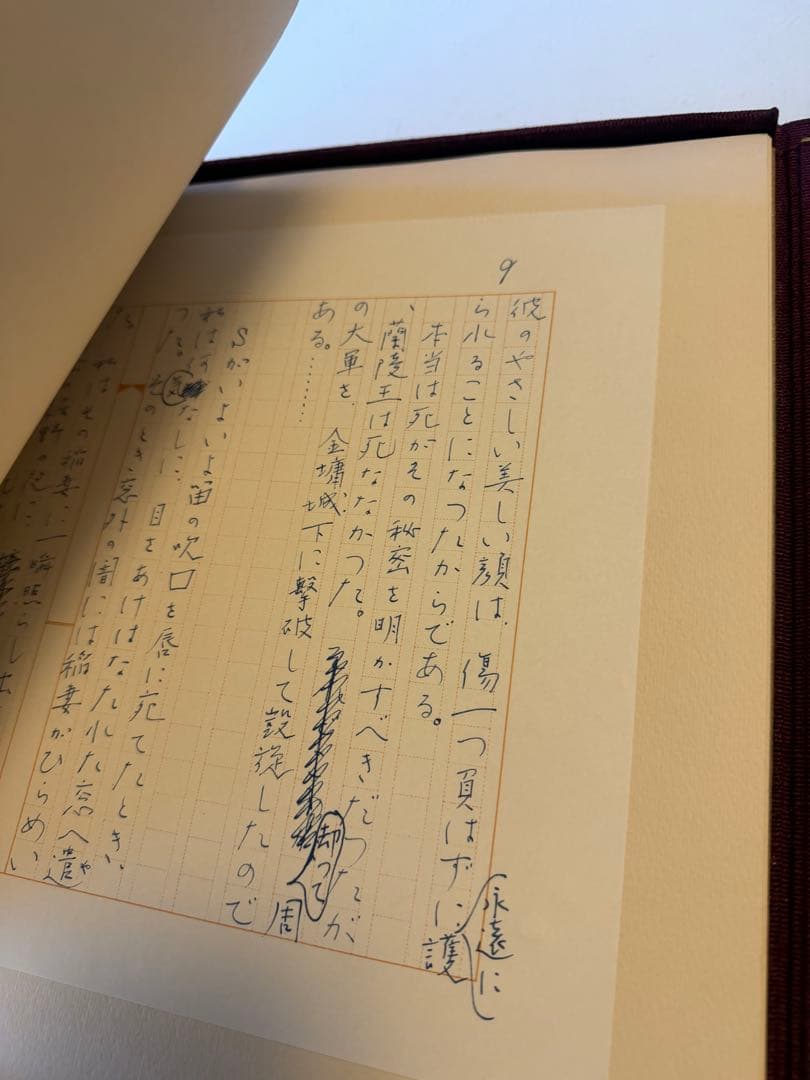 9
彼のやさしい美しい顔は、傷一つ負はずに護
永遠に
られることになつたからである。
本当は死がその秘密を明かすべきだつたが
、蘭陵王は死ななかつた。却つて周
の大軍を、金墉城下に撃破して凱旋したので
ある。………
Sがいよいよ笛の吹口を唇に宛てたとき、
私は何気なしに、目をあけはなたれた窓へ遣
や
つた。そのとき窓外の闇には稲妻がひらめい
た。
はその稲妻に一瞬照らし出